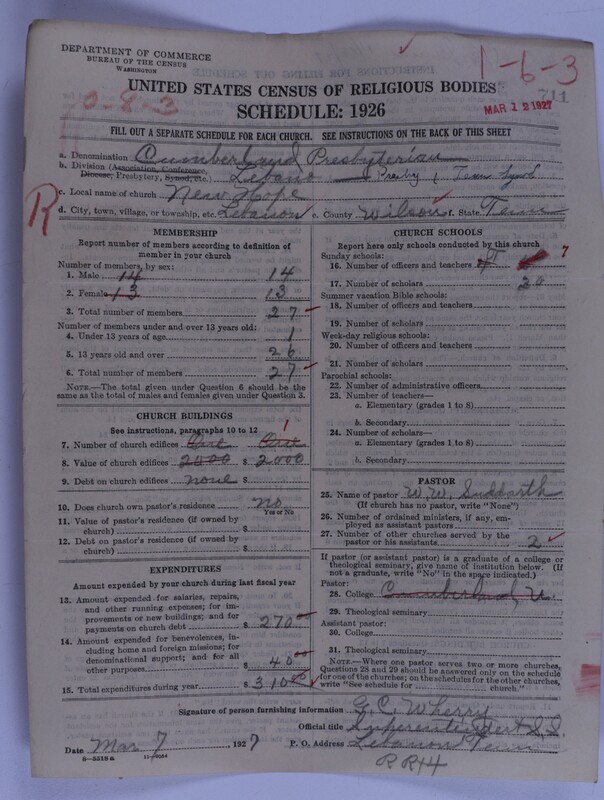 DEPARTMENT OF COMMERCE
BUREAU OF THE CENSUS
WASHINGTON
1-6-3
0-8-3
UNITED STATES CENSUS OF RELIGIOUS BODIES
SCHEDULE: 1926
MAR 12 1927
711
FILL OUT A SEPARATE SCHEDULE FOR EACH CHURCH. SEE INSTRUCTIONS ON THE BACK OF THIS SHEET
a. Denomination Cumberland Presbyterian
b. Division (Association, Conference, Diocese, Presbytery, Synod, etc.) Lebanon Presby, Tenn Synod
c. Local name of church New Hope
R
d. City, town, village, or township, etc. Lebanon e. County Wilson f. State Tenn
MEMBERSHIP
Report number of members according to definition of
member in your church
Number of members, by sex:
1. Male 14 14
2. Female 13 13
3. Total number of members 27
Number of members under and over 13 years old:
4. Under 13 years of age 1
5. 13 years old and over 26
6. Total number of members 27
NOTE.—The total given under Question 6 should be
same as the total of males and females given under Question 3.
CHURCH BUILDINGS
See instructions, paragraphs 10 to 12
1
7. Number of church edifices One One
8. Value of church edifices 2000 $ 2000
9. Debt on church edifices none $
10. Does church own pastor's residence? No
Yes or No
11. Value of pastor's residence (if owned by
church) $
12. Debt on pastor's residence (if owned by
church) $
EXPENDITURES
Amount expended by your church during last fiscal year
13. Amount expended for salaries, repairs,
and other running expenses; for im-
provements or new buildings; and for
payments on church debt $ 270 00
14. Amount expended for benevolences, in-
cluding home and foreign missions; for
denominational support; and for all
other purposes $ 40 00
15. Total expenditures during year $ 310 00
CHURCH SCHOOLS
Report here only schools conducted by this church
Sunday schools:
16. Number of officers and teachers 7
17. Number of scholars 20
Summer vacation Bible schools:
18. Number of officers and teachers
19. Number of scholars
Week-day religious schools:
20. Number of officers and teachers
21. Number of scholars
Parochial schools:
22. Number of administrative officers
23. Number of teachers—
a. Elementary (grades 1 to 8)
b. Secondary
24. Number of scholars—
a. Elementary (grades 1 to 8)
b. Secondary
PASTOR
25. Name of pastor W. W. Suddarth
(If church has no pastor, write "None")
26. Number of ordained ministers, if any, em-
ployed as assistant pastors
27. Number of other churches served by the
pastor or his assistants 2
If pastor (or assistant pastor) is a graduate of a college or
theological seminary, give name of institution below. (If
not a graduate, write "No" in the space indicated.)
Pastor:
28. College Cumberland, U.
29. Theological seminary
Assistant pastor:
30. College
31. Theological seminary
NOTE.—Where one pastor serves two or more churches,
Questions 28 and 29 should be answered only on the schedule
for one of the churches; on the schedules for the other churches,
write "See schedule for church."
Signature of person furnishing information G. C. Wherry
Official title Superintendent S.S.
Date Mar 7, 1927 P. O. Address Lebanon Tenn
R R #4
8—5518 a